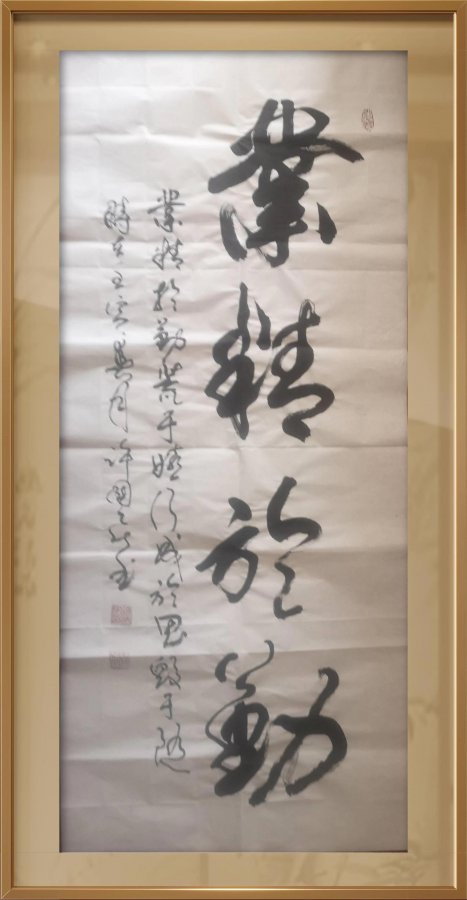 業精於勤
業精於勤荒于嬉行成於思毀于隨
時在壬寅春月許國